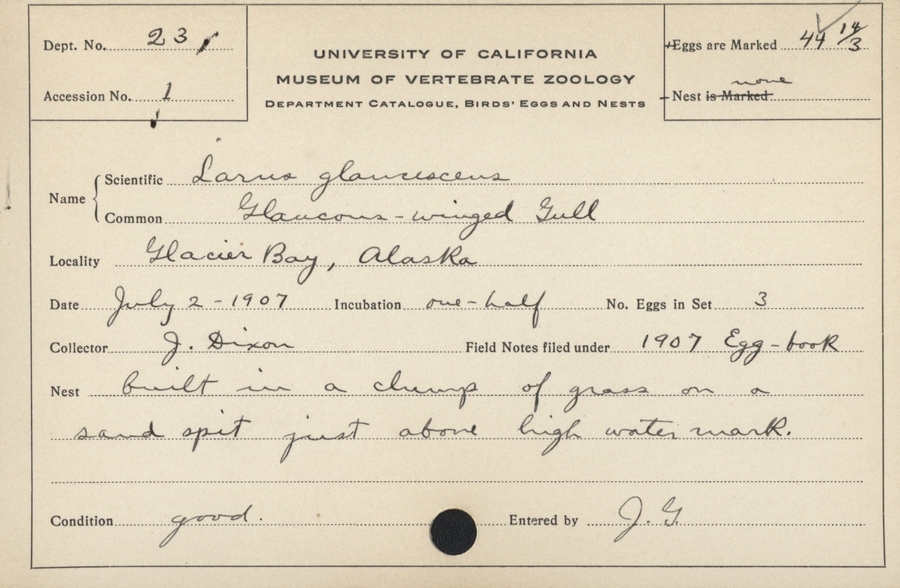 Dept. No. 23
Accession No. 1
UNIVERSITY OF CALIFORNIA
MUSEUM OF VERTEBRATE ZOOLOGY
DEPARTMENT CATALOGUE, BIRDS' EGGS AND NESTS
Eggs are Marked 44 14/3
Nest is Marked none
Name
Scientific Larus glaucescens
Common Glaucous-winged Gull
Locality Glacier Bay, Alaska
Date July 2 - 1907 Incubation one-half No. Eggs in Set 3
Collector J. Dixon Field Notes filed under 1907 Egg-book
Nest built in a clump of grass on a
sand spit just above high water mark.
Condition good. Entered by J. G.